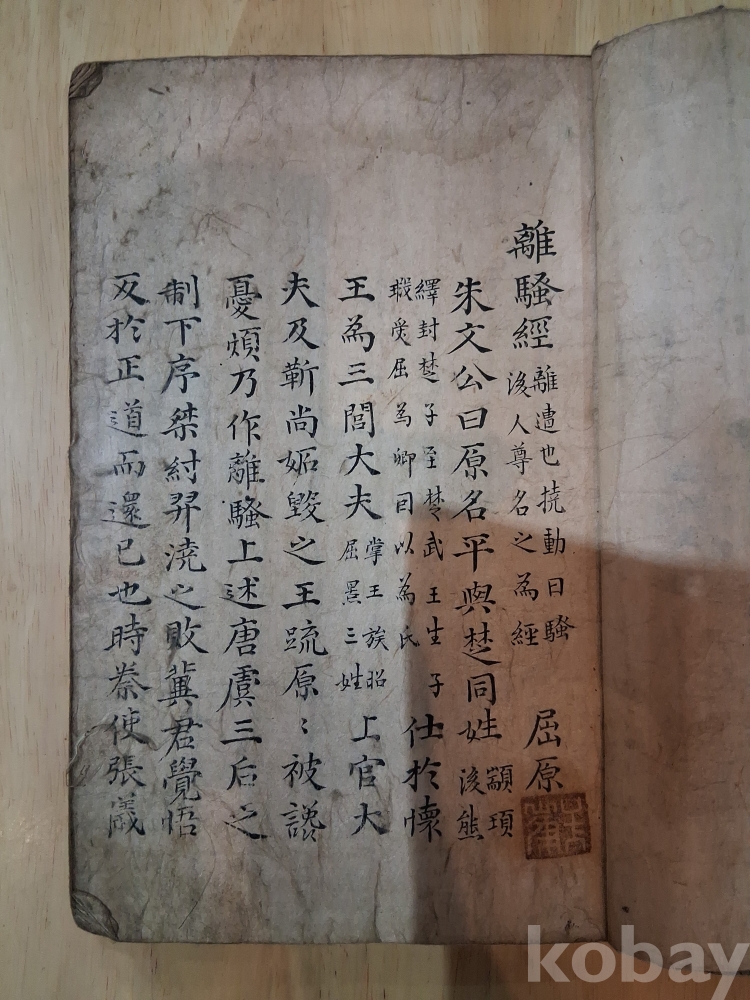 離騷經 離遭也撓動曰騷 後人尊名之為經 屈原
朱文公曰原名平與楚同姓 顓頊後熊
繹封楚子至楚武王生子 瑕受屈為卿因以為氏 仕於懷
王為三閭大夫 掌王族昭 屈景三姓 上官大
夫及靳尚妬毀之王疏原〻被讒
憂煩乃作離騷上述唐虞三后之
制下序桀紂羿澆之敗冀君覺悟
反於正道而還己也時秦使張儀
kobay